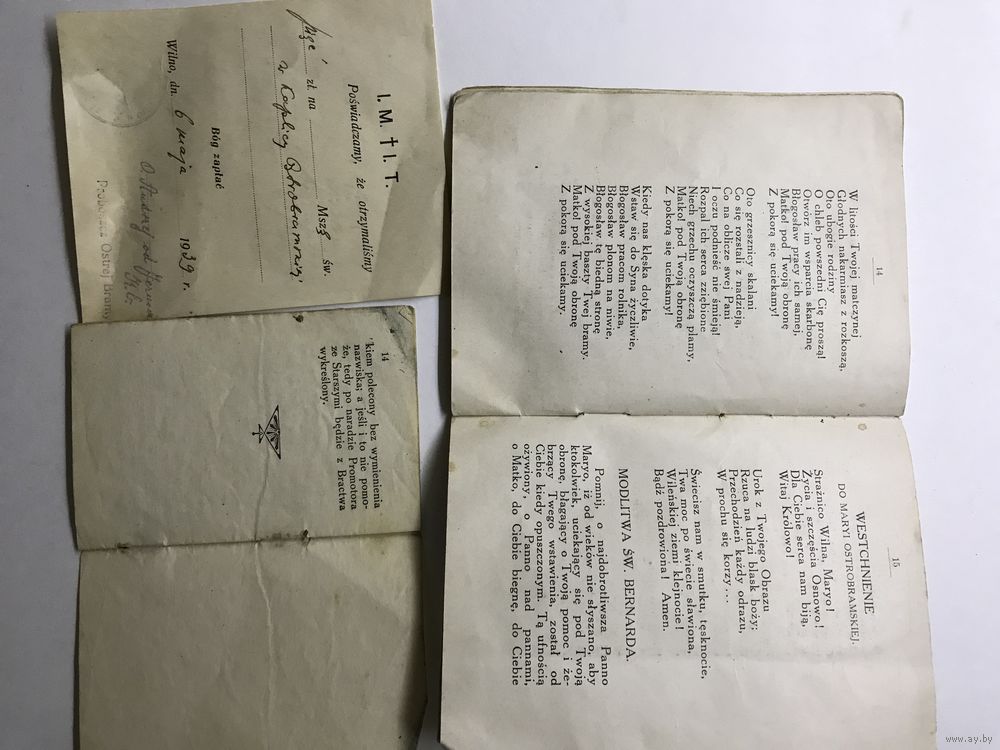 I. M. † I. T.
Poświadczamy, że otrzymaliśmy
zł. na Mszę św.
w Kaplicy Ostrobramskiej
Bóg zapłać
Wilno, dn. 6 maja 1939 r.
Proboszcz Ostrej Bramy
14
kiem polecony bez wymienienia
nazwiska; a jeśli i to nie pomo-
że, tedy po naradzie Promotora
ze Starszymi będzie z Bractwa
wykreślony.
14
W litości Twojej matczynej
Głodnych nakarmiasz z rozkoszą,
Oto ubogie rodziny
O chleb powszedni Cię proszą!
Otwórz im wsparcia skarbonę
Błogosław pracy ich samej,
Matko! pod Twoją obronę
Z pokorą się uciekamy!
Oto grzesznicy skalani
Co się rozstali z nadzieją,
Co na oblicze swej Pani
I oczu podnieść nie śmieją!
Rozpal ich serca zziębione
Niech grzechu oczyszczą plamy,
Matko! pod Twoją obronę
Z pokorą się uciekamy!
Kiedy nas klęska dotyka
Wstaw się do Syna życzliwie,
Błogosław pracom rolnika,
Błogosław plonom na niwie,
Błogosław tę biedną stronę
Z wysokiej baszty Twej bramy.
Matko! pod Twoją obronę
Z pokorą się uciekamy.
15
WESTCHNIENIE
DO MARYI OSTROBRAMSKIEJ.
Strażnico Wilna, Maryo!
Życia i szczęścia Osnowo!
Dla Ciebie serca nam biją,
Witaj Królowo!
Urok z Twojego Obrazu
Rzuca na ludzi blask boży;
Przechodzień każdy odrazu,
W prochu się korzy...
Świecisz nam w smutku, tęsknocie,
Twa moc po świecie sławiona,
Wileńskiej ziemi klejnocie!
Bądź pozdrowiona! Amen.
MODLITWA ŚW. BERNARDA.
Pomnij, o najdobrotliwsza Panno
Maryo, iż od wieków nie słyszano, aby
ktokolwiek, uciekający się pod Twoją
obronę, błagający o Twoją pomoc i że-
brzący Twego wstawienia, został od
Ciebie kiedy opuszczonym. Tą ufnością
ożywiony, o Panno nad pannami,
o Matko, do Ciebie biegnę, do Ciebie
www.ay.by